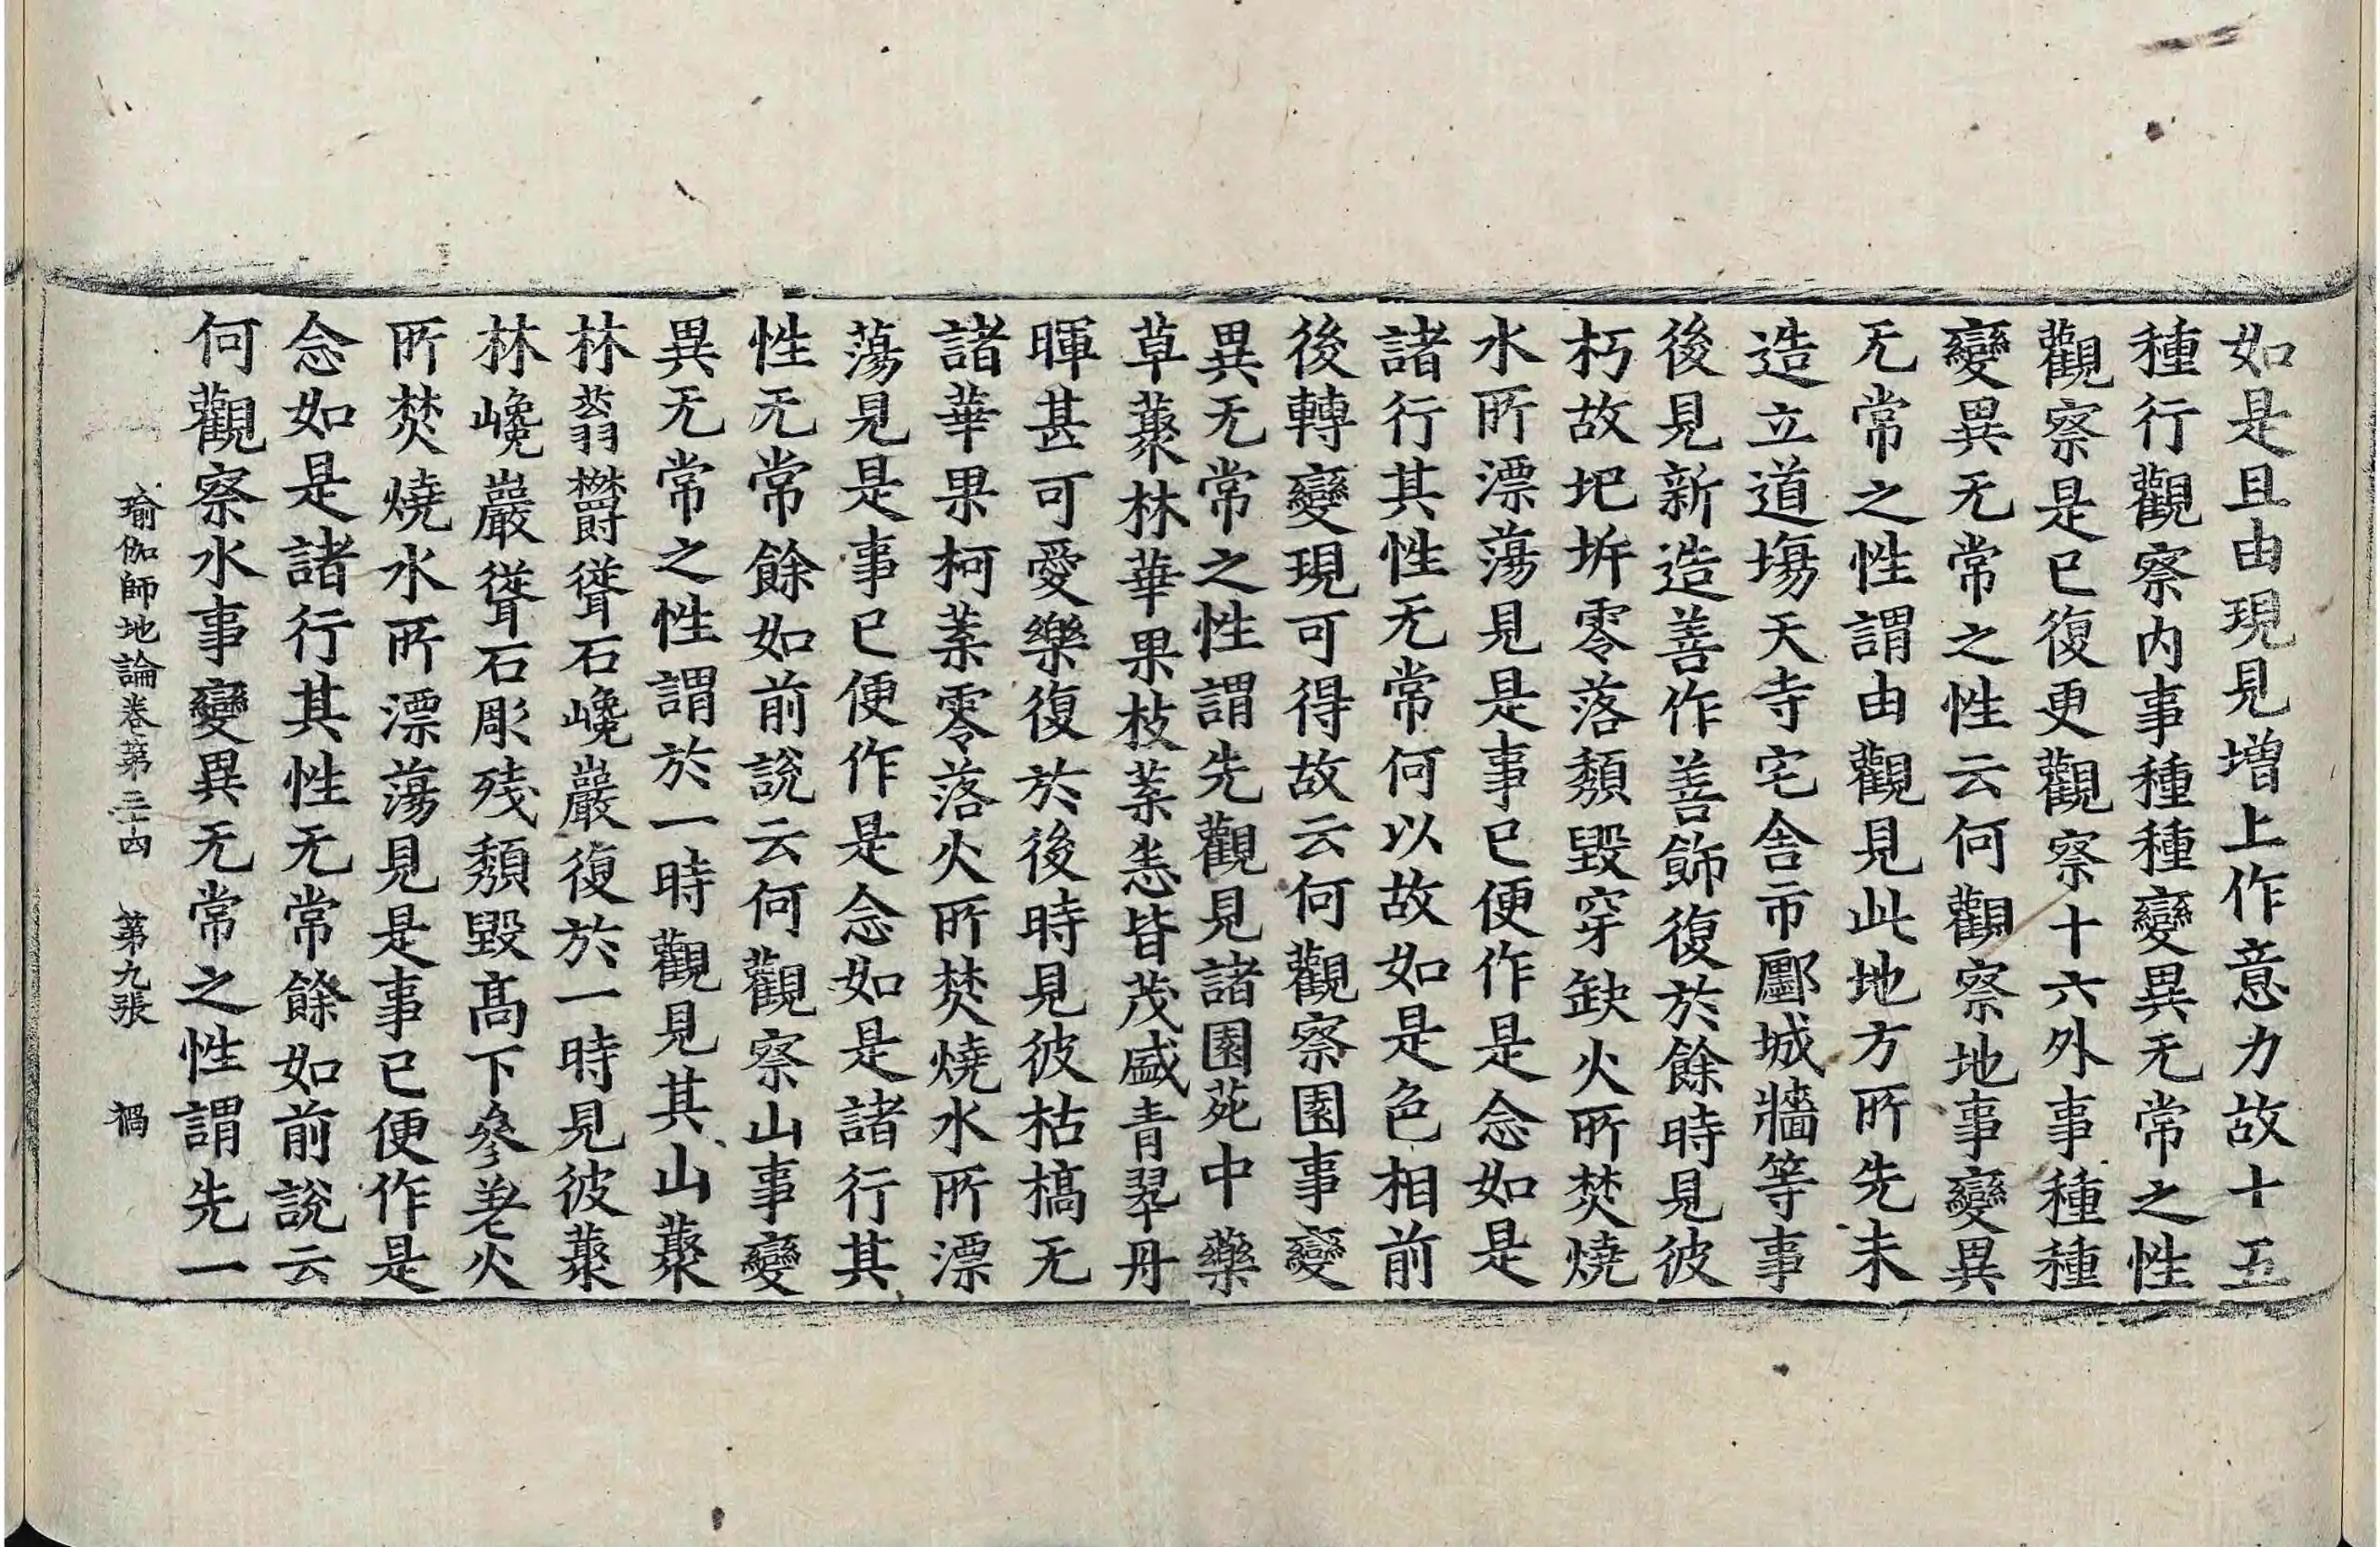 如是且由現見增上作意力故十五
種行觀察內事種種變異无常之性
觀察是已復更觀察十六外事種種
變異无常之性云何觀察地事變異
无常之性謂由觀見此地方所先未
造立道場天寺宅舍市鄽城牆等事
後見新造善作善飾復於餘時見彼
朽故圮坼零落頹毀穿缺火所焚燒
水所漂蕩見是事已便作是念如是
諸行其性无常何以故如是色相前
後轉變現可得故云何觀察園事變
異无常之性謂先觀見諸園苑中藥
草藂林華果枝葉悉皆茂盛青翠丹
暉甚可愛樂復於後時見彼枯槁无
諸華果柯葉零落火所焚燒水所漂
蕩見是事已便作是念如是諸行其
性无常餘如前說云何觀察山事變
異无常之性謂於一時觀見其山藂
林蓊欝聳石巉巖復於一時見彼藂
林巉巖聳石彫殘頹毀高下參差火
所焚燒水所漂蕩見是事已便作是
念如是諸行其性无常餘如前說云
何觀察水事變異无常之性謂先一
瑜伽師地論卷第三十四 第九張